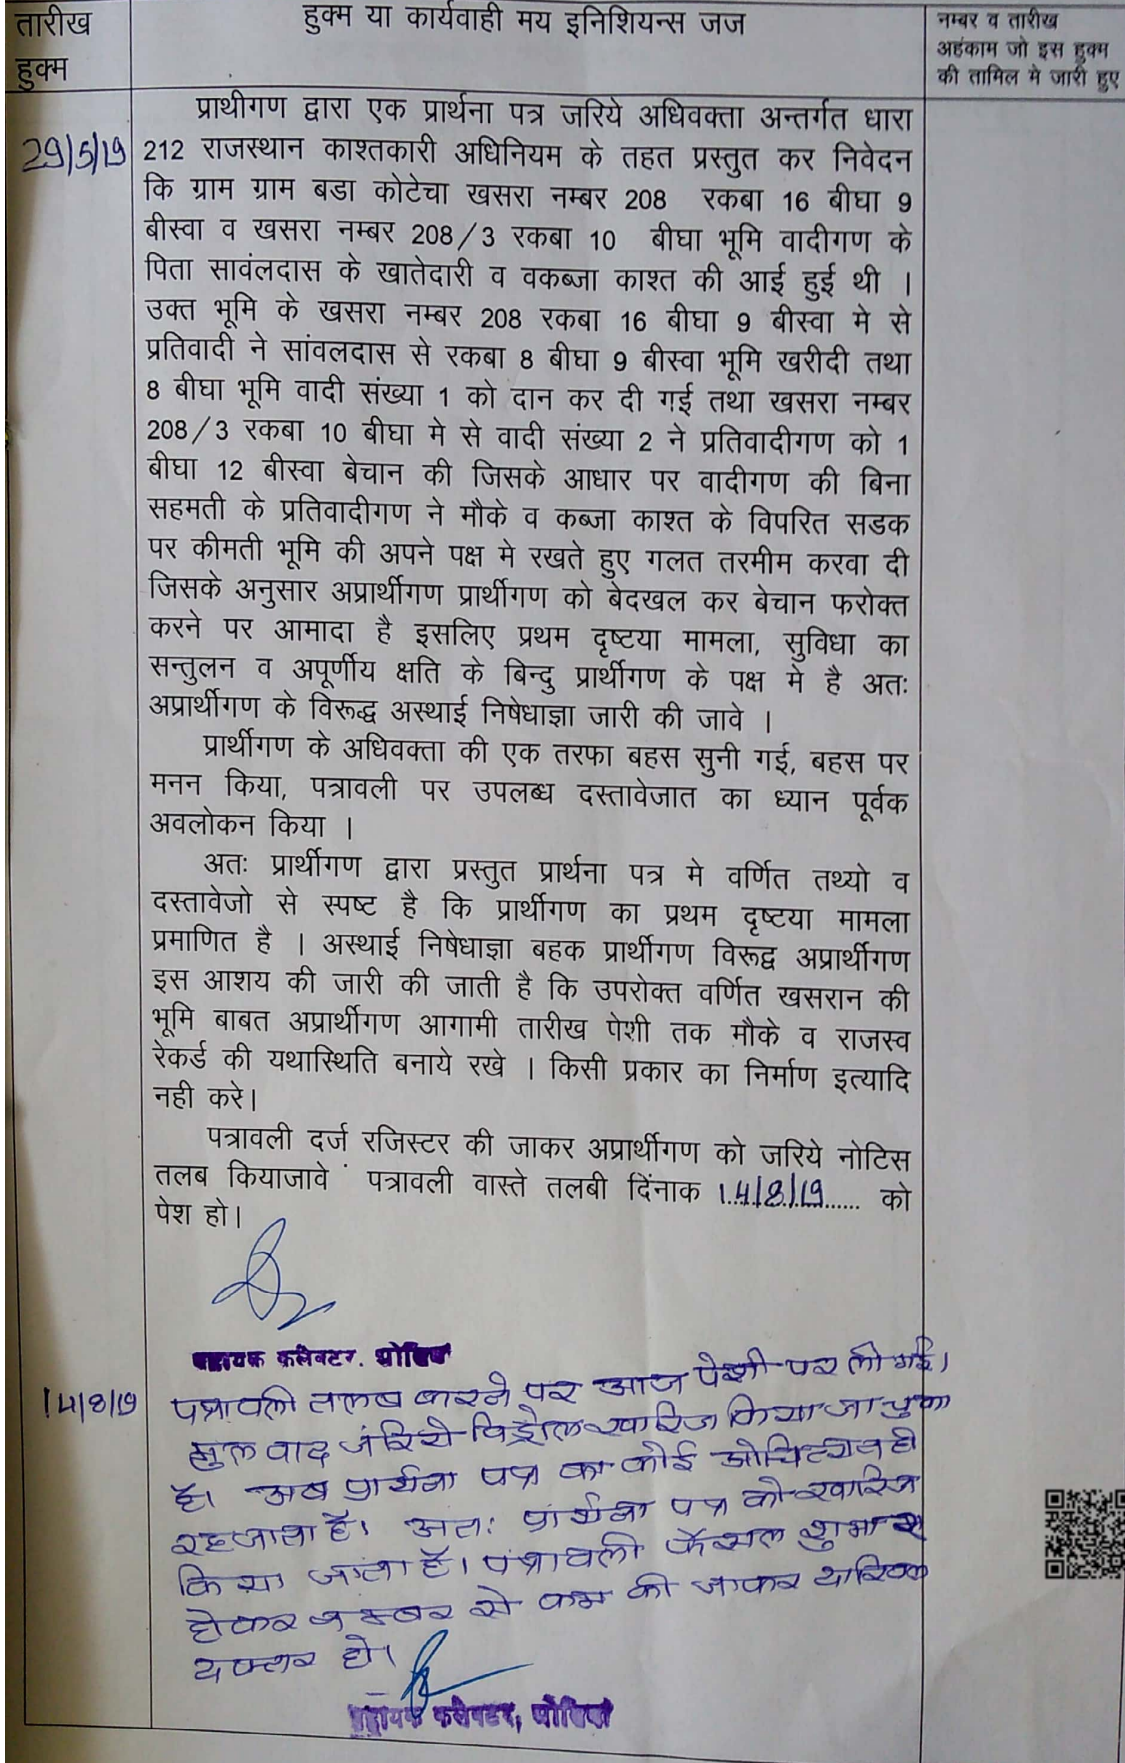 तारीख
हुक्म
हुक्म या कार्यवाही मय इनिशियन्स जज
नम्बर व तारीख
अहंकाम जो इस हुक्म
की तामिल मे जारी हुए
29/5/19
प्राथीगण द्वारा एक प्रार्थना पत्र जरिये अधिवक्ता अन्तर्गत धारा
212 राजस्थान काश्तकारी अधिनियम के तहत प्रस्तुत कर निवेदन
कि ग्राम ग्राम बडा कोटेचा खसरा नम्बर 208 रकबा 16 बीघा 9
बीस्वा व खसरा नम्बर 208/3 रकबा 10 बीघा भूमि वादीगण के
पिता सावंलदास के खातेदारी व वकब्जा काश्त की आई हुई थी ।
उक्त भूमि के खसरा नम्बर 208 रकबा 16 बीघा 9 बीस्वा मे से
प्रतिवादी ने सांवलदास से रकबा 8 बीघा 9 बीस्वा भूमि खरीदी तथा
8 बीघा भूमि वादी संख्या 1 को दान कर दी गई तथा खसरा नम्बर
208/3 रकबा 10 बीघा मे से वादी संख्या 2 ने प्रतिवादीगण को 1
बीघा 12 बीस्वा बेचान की जिसके आधार पर वादीगण की बिना
सहमती के प्रतिवादीगण ने मौके व कब्जा काश्त के विपरित सडक
पर कीमती भूमि की अपने पक्ष मे रखते हुए गलत तरमीम करवा दी
जिसके अनुसार अप्रार्थीगण प्रार्थीगण को बेदखल कर बेचान फरोक्त
करने पर आमादा है इसलिए प्रथम दृष्टया मामला, सुविधा का
सन्तुलन व अपूर्णीय क्षति के बिन्दु प्रार्थीगण के पक्ष मे है अतः
अप्रार्थीगण के विरूद्ध अस्थाई निषेधाज्ञा जारी की जावे ।
प्रार्थीगण के अधिवक्ता की एक तरफा बहस सुनी गई, बहस पर
मनन किया, पत्रावली पर उपलब्ध दस्तावेजात का ध्यान पूर्वक
अवलोकन किया ।
अतः प्रार्थीगण द्वारा प्रस्तुत प्रार्थना पत्र मे वर्णित तथ्यो व
दस्तावेजो से स्पष्ट है कि प्रार्थीगण का प्रथम दृष्टया मामला
प्रमाणित है । अस्थाई निषेधाज्ञा बहक प्रार्थीगण विरूद्व अप्रार्थीगण
इस आशय की जारी की जाती है कि उपरोक्त वर्णित खसरान की
भूमि बाबत अप्रार्थीगण आगामी तारीख पेशी तक मौके व राजस्व
रेकर्ड की यथास्थिति बनाये रखे । किसी प्रकार का निर्माण इत्यादि
नही करे।
पत्रावली दर्ज रजिस्टर की जाकर अप्रार्थीगण को जरिये नोटिस
तलब कियाजावे पत्रावली वास्ते तलबी दिंनाक 14/8/19 को
पेश हो।
कलेक्टर,
14/8/19
पत्रावली तलब करने पर आज पेशी पर ली गई।
मुल वाद जरिये विड्रोल खारिज किया जा चुका
है। अब प्रार्थना पत्र का कोई औचित्य नही
रह जाता है। अतः प्रार्थना पत्र को खारिज
किया जाता है। पत्रावली फैसल शुमार
होकर नम्बर से कम की जाकर दाखिल
दफ्तर हो।
कलेक्टर,